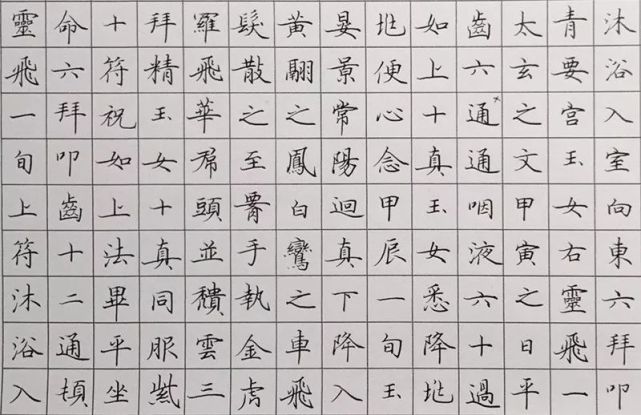 沐浴入室向東六拜叩
青要宮玉女右靈飛一
太玄之文甲寅之日平
齒六通通咽液六十過
如上十真玉女悉降兆
兆便心念甲辰一旬玉
晏景常陽迴真下降入
黃翮之鳳白鸞之車飛
髮散之至手執金虎
羅飛華帬頭並穨雲三
拜精玉女十真同服紫
十符祝如上法畢平坐
命六拜叩齒十二通頓
靈飛一旬上符沐浴入